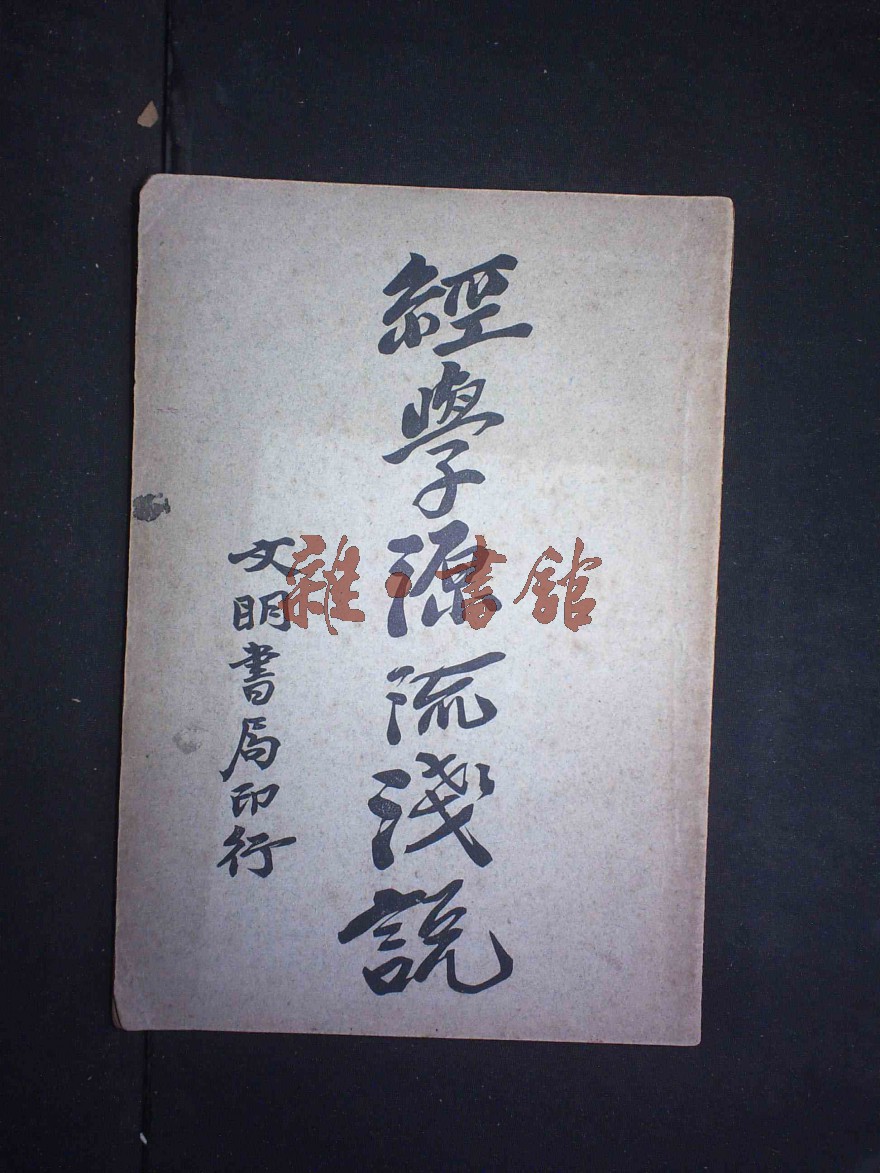 經學源流淺説
文明書局印行
雜·書舘